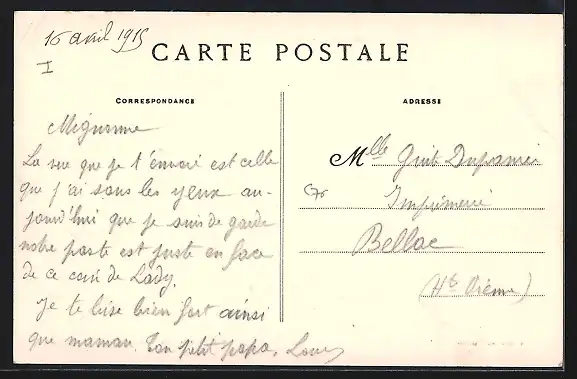 16 avril 1915
I
CARTE POSTALE
CORRESPONDANCE
ADRESSE
Mignonne
La vue que je t'envoie est celle
que j'ai sous les yeux au-
jourd'hui que je suis de garde
notre poste est juste en face
de ce coin de
je te bise bien fort ainsi
que maman. Ton petit papa, Louis
Mlle
Imprimerie
Bellac
(Hte Vienne)